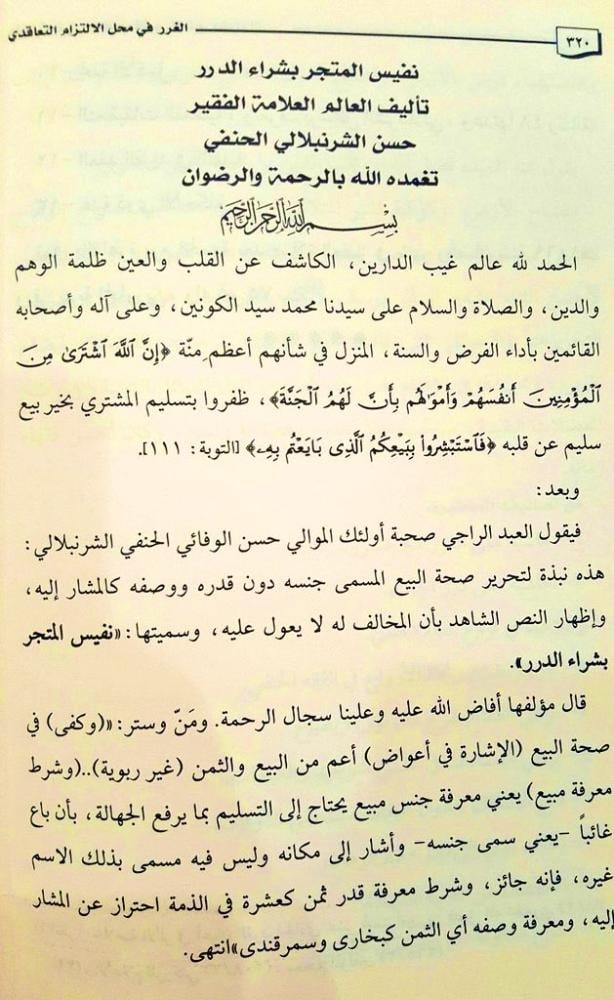 ٣٢٠
الغرر في محل الالتزام التعاقدي
نفيس المتجر بشراء الدرر
تأليف العالم العلامة الفقير
حسن الشرنبلالي الحنفي
تغمده الله بالرحمة والرضوان
بسم الله الرحمن الرحيم
الحمد لله عالم غيب الدارين، الكاشف عن القلب والعين ظلمة الوهم
والدين، والصلاة والسلام على سيدنا محمد سيد الكونين، وعلى آله وأصحابه
القائمين بأداء الفرض والسنة، المنزل في شأنهم أعظم مِنة ﴿إِنَّ ٱللَّهَ ٱشْتَرَىٰ مِنَ
ٱلْمُؤْمِنِينَ أَنفُسَهُمْ وَأَمْوَٰلَهُم بِأَنَّ لَهُمُ ٱلْجَنَّةَ﴾، ظفروا بتسليم المشتري بخير بيع
سليم عن قلبه ﴿فَٱسْتَبْشِرُوا۟ بِبَيْعِكُمُ ٱلَّذِى بَايَعْتُم بِهِۦ﴾ [التوبة: ١١١].
وبعد:
فيقول العبد الراجي صحبة أولئك الموالي حسن الوفائي الحنفي الشرنبلالي:
هذه نبذة لتحرير صحة البيع المسمى جنسه دون قدره ووصفه كالمشار إليه،
وإظهار النص الشاهد بأن المخالف له لا يعول عليه، وسميتها: «نفيس المتجر
بشراء الدرر».
قال مؤلفها أفاض الله عليه وعلينا سجال الرحمة. ومَنّ وستر: «(وكفى) في
صحة البيع (الإشارة في أعواض) أعم من البيع والثمن (غير ربوية)..(وشرط
معرفة مبيع) يعني معرفة جنس مبيع يحتاج إلى التسليم بما يرفع الجهالة، بأن باع
غائباً -يعني سمى جنسه- وأشار إلى مكانه وليس فيه مسمى بذلك الاسم
غيره، فإنه جائز، وشرط معرفة قدر ثمن كعشرة في الذمة احتراز عن المشار
إليه، ومعرفة وصفه أي الثمن كبخارى وسمرقندى»انتهى.